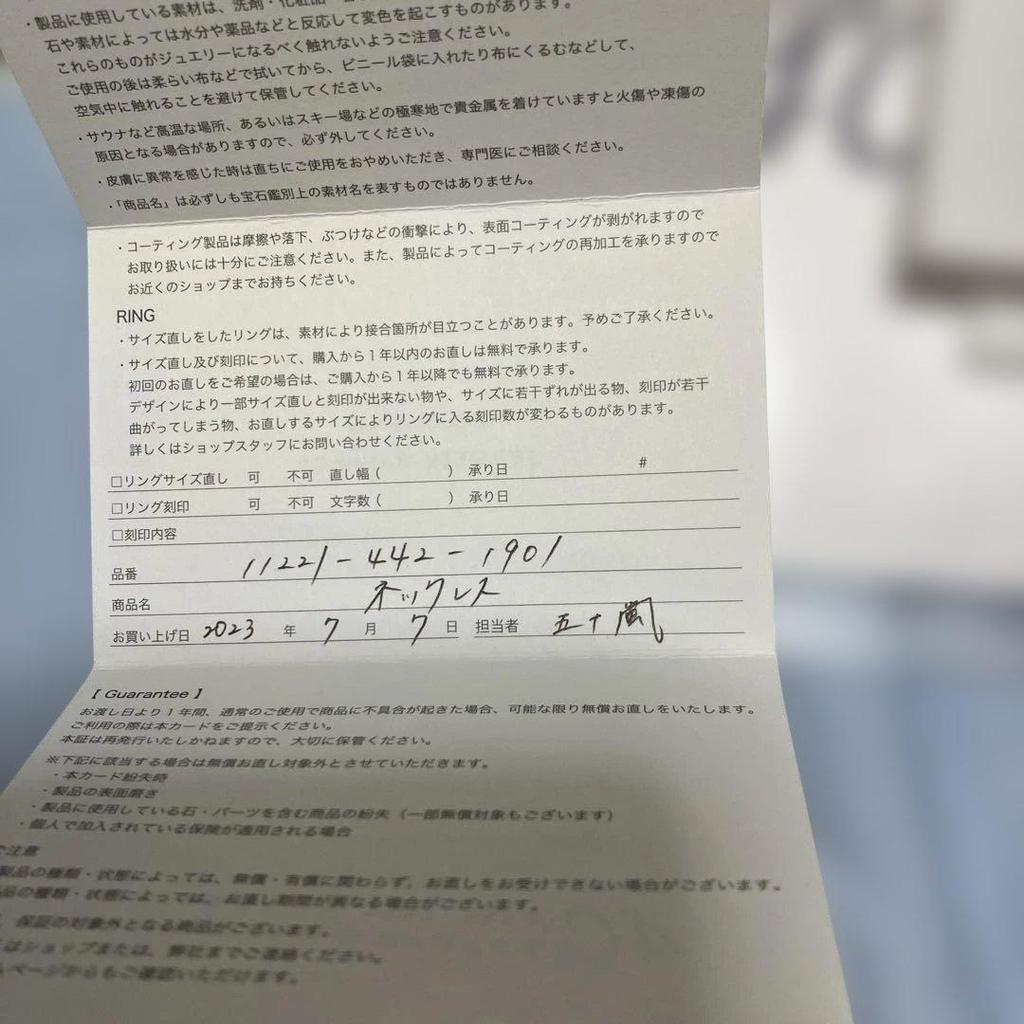 ・製品に使用している素材は、洗剤・化粧品
石や素材によっては水分や薬品などと反応して変色を起こすものがあります。
これらのものがジュエリーになるべく触れないようご注意ください。
ご使用の後は柔らい布などで拭いてから、ビニール袋に入れたり布にくるむなどして、
空気中に触れることを避けて保管してください。
・サウナなど高温な場所、あるいはスキー場などの極寒地で貴金属を着けていますと火傷や凍傷の
原因となる場合がありますので、必ず外してください。
・皮膚に異常を感じた時は直ちにご使用をおやめいただき、専門医にご相談ください。
・「商品名」は必ずしも宝石鑑別上の素材名を表すものではありません。
・コーティング製品は摩擦や落下、ぶつけなどの衝撃により、表面コーティングが剥がれますので
お取り扱いには十分にご注意ください。また、製品によってコーティングの再加工を承りますので
お近くのショップまでお持ちください。
RING
・サイズ直しをしたリングは、素材により接合箇所が目立つことがあります。予めご了承ください。
・サイズ直し及び刻印について、購入から1年以内のお直しは無料で承ります。
初回のお直しをご希望の場合は、ご購入から1年以降でも無料で承ります。
デザインにより一部サイズ直しと刻印が出来ない物や、サイズに若干ずれが出る物、刻印が若干
曲がってしまう物、お直しするサイズによりリングに入る刻印数が変わるものがあります。
詳しくはショップスタッフにお問い合わせください。
□リングサイズ直し 可 不可 直し幅 ( ) 承り日 #
□リング刻印 可 不可 文字数 ( ) 承り日
□刻印内容
品番 11221-442-1901
商品名 ネックレス
お買い上げ日 2023 年 7 月 7 日 担当者 五十嵐
【 Guarantee 】
お渡し日より1年間、通常のご使用で商品に不具合が起きた場合、可能な限り無償お直しをいたします。
ご利用の際は本カードをご提示ください。
本証は再発行いたしかねますので、大切に保管ください。
※下記に該当する場合は無償お直し対象外とさせていただきます。
・本カード紛失時
・製品の表面磨き
・製品に使用している石・パーツを含む商品の紛失（一部無償対象もございます）
・個人で加入されている保険が適用される場合
ご注意
製品の種類・状態によっては、無償・有償に関わらず、お直しをお受けできない場合がございます。
品の種類・状態によっては、お直し期間が異なる場合がございます。
保証の対象外となる商品がございます。
はショップまたは、弊社までご連絡ください。
ページからもご確認いただけます。